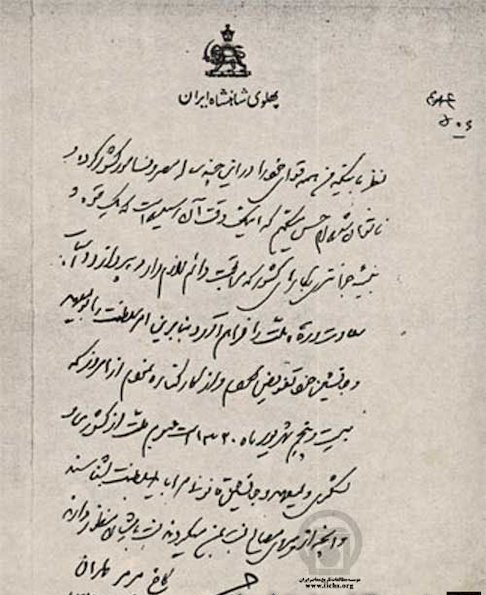 پهلوی شاهنشاه ایران
نظر باینکه من همه قوای خود را در این چند ساله مصروف امور کشور کرده و
ناتوان شده‌ام حس میکنم که اینک وقت آن رسیده است که یک قوه و
بنیه جوانتری بکارهای کشور که مراقبت دائم لازم دارد بپردازد و اسباب
سعادت و رفاه ملت را فراهم آورد بنابراین امر سلطنت را بولیعهد
و جانشین خود تفویض کردم و از کار کناره نمودم از امروز که
بیست و پنجم شهریور ماه ۱۳۲۰ است عموم ملت از کشوری و
لشکری ولیعهد و جانشین قانونی مرا باید بسلطنت بشناسند
و آنچه از پیروی مصالح نسبت بمن میکردند نسبت بایشان منظور دارند
کاخ مرمر تهران
موسسه مطالعات تاریخ معاصر ایران
www.iichs.org